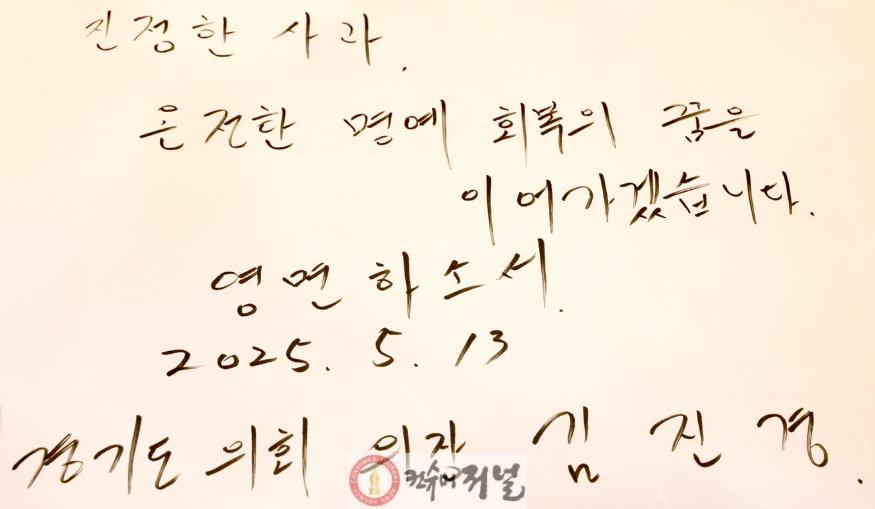 진정한 사과.
온전한 명예 회복의 꿈을
이어가겠습니다.
영면하소서.
2025. 5. 13
경기도의회 의장 김진경.
컨슈머저널